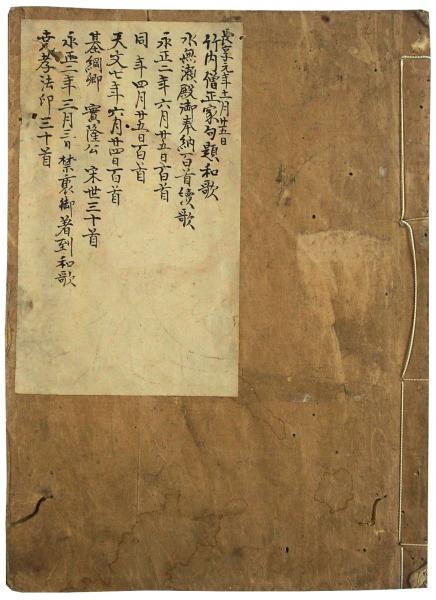 長享元年十一月廿五日
竹内僧正家句題和歌
水無瀬殿御奉納百首續歌
永正二年六月廿五日百首
同年四月廿五日百首
天文七年六月廿四日百首
基綱卿 實隆公 宋世三十首
永正二年三月三日禁裏御着到和歌
堯孝法印三十首